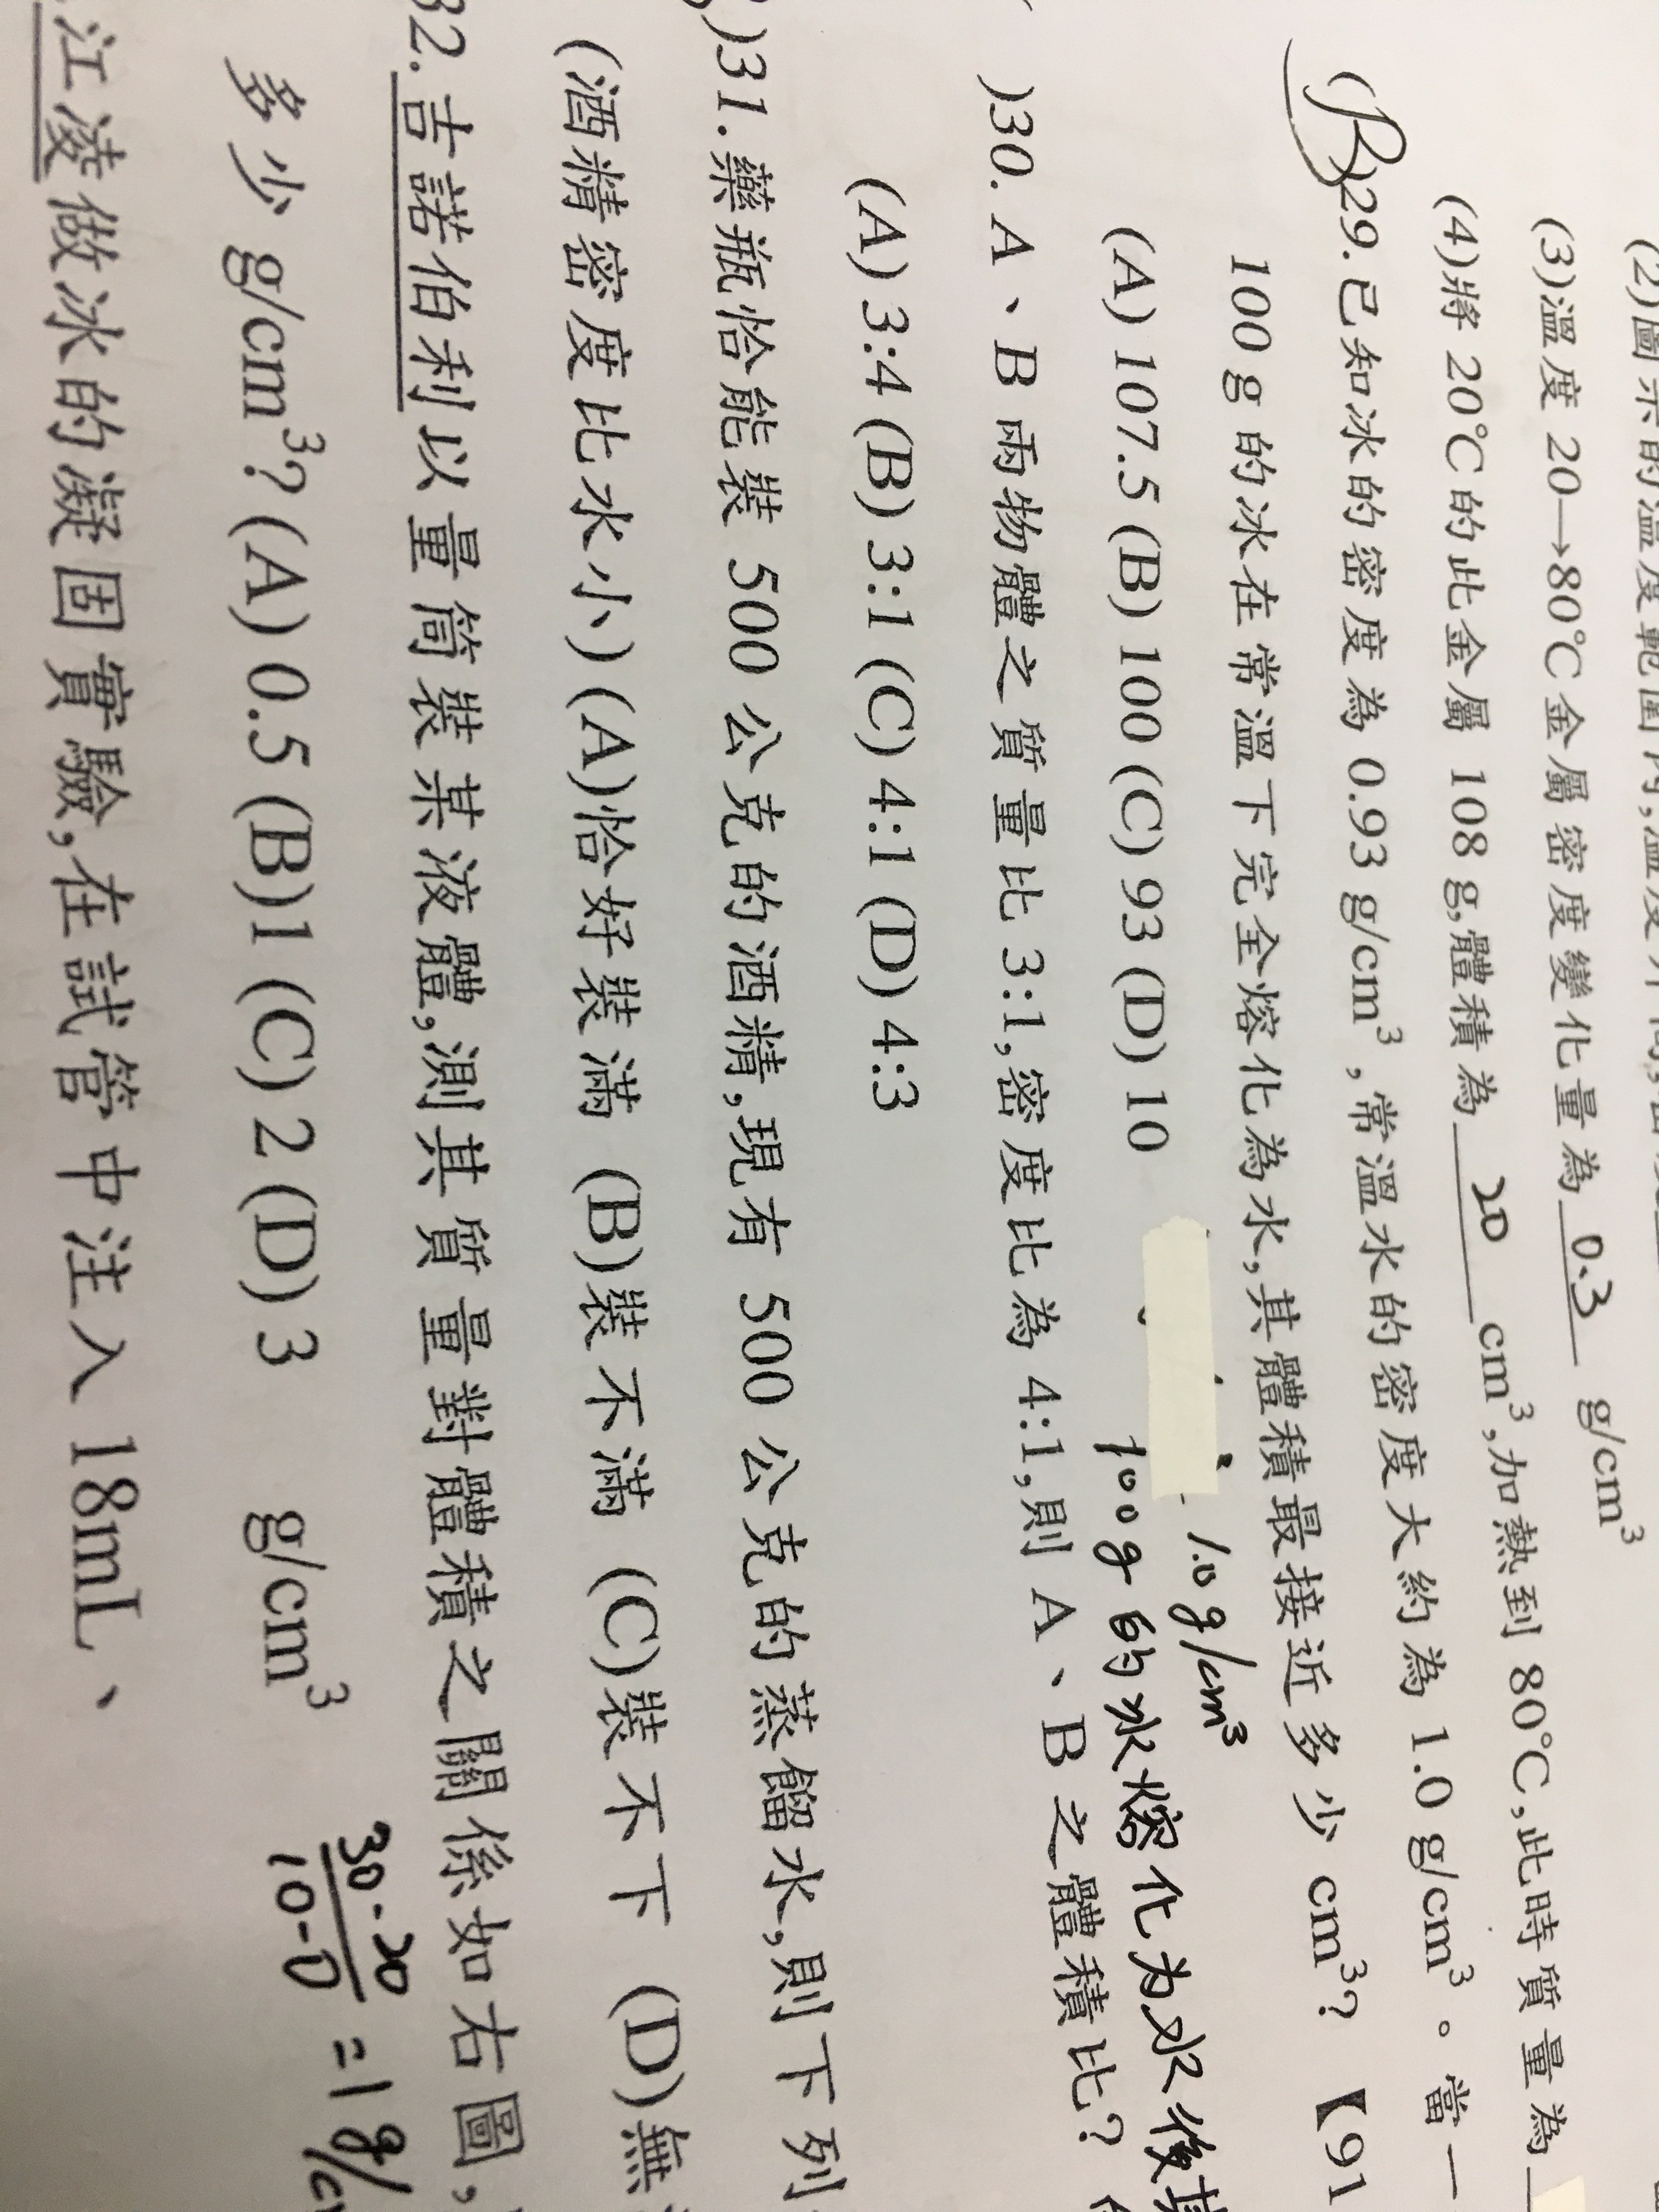 (2)圖示的溫度範圍內,溫度
(3)溫度 20→80℃金屬密度變化量為 0.3 g/cm³
(4)將 20℃的此金屬 108 g,體積為 20 cm³,加熱到 80℃,此時質量為
)29.已知冰的密度為 0.93 g/cm³,常溫水的密度大約為 1.0 g/cm³。當一
100 g 的冰在常溫下完全熔化為水,其體積最接近多少 cm³?【91
(A) 107.5 (B) 100 (C) 93 (D) 10
1.0 g/cm³
100g 的冰熔化为水後其
)30. A、B 兩物體之質量比 3:1,密度比為 4:1,則 A、B 之體積比?
(A) 3:4 (B) 3:1 (C) 4:1 (D) 4:3
)31.藥瓶恰能裝 500 公克的酒精,現有 500 公克的蒸餾水,則下列
(酒精密度比水小) (A)恰好裝滿 (B)裝不滿 (C)裝不下 (D)無
32.吉諾伯利以量筒裝某液體,測其質量對體積之關係如右圖,
多少 g/cm³? (A) 0.5 (B)1 (C) 2 (D) 3 g/cm³
30-20
10-0
=1 g/c
江凌做冰的凝固實驗,在試管中注入 18mL、